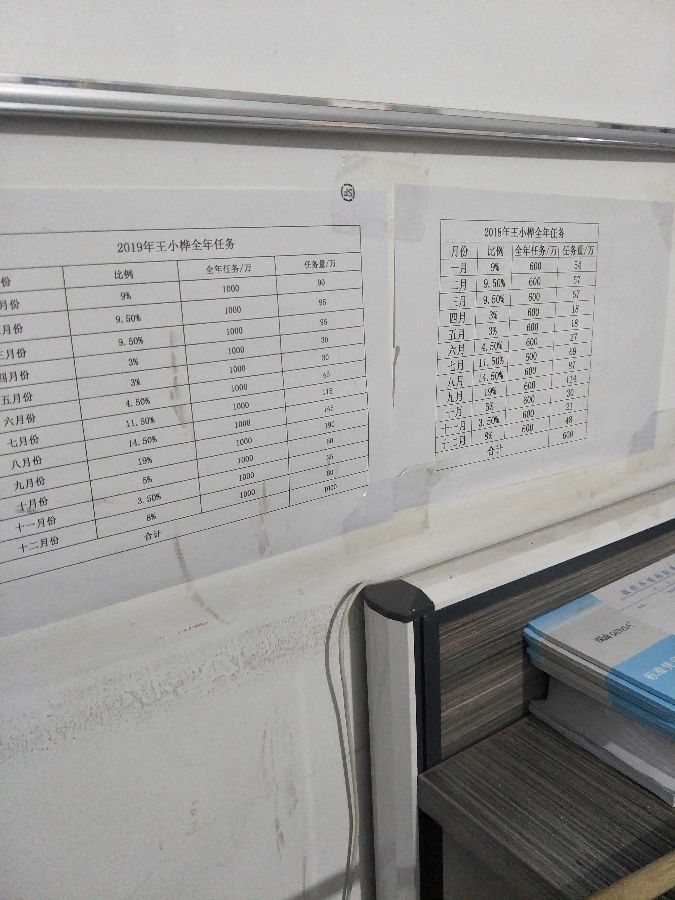 2019年王小桦全年任务
份 比例 全年任务/万 任务量/万
月份 9% 1000 90
月份 9.50% 1000 95
三月份 9.50% 1000 95
四月份 3% 1000 30
五月份 3% 1000 30
六月份 4.50% 1000 45
七月份 11.50% 1000 115
八月份 14.50% 1000 145
九月份 19% 1000 190
十月份 5% 1000 50
十一月份 3.50% 1000 35
十二月份 8% 1000 80
合计 1000
2018年王小桦全年任务
月份 比例 全年任务/万 任务量/万
一月 9% 600 54
二月 9.50% 600 57
三月 9.50% 600 57
四月 3% 600 18
五月 3% 600 18
六月 4.50% 600 27
七月 11.50% 600 69
八月 14.50% 600 87
九月 19% 600 114
十月 5% 600 30
十一月 3.50% 600 21
十二月 8% 600 48
合计 600